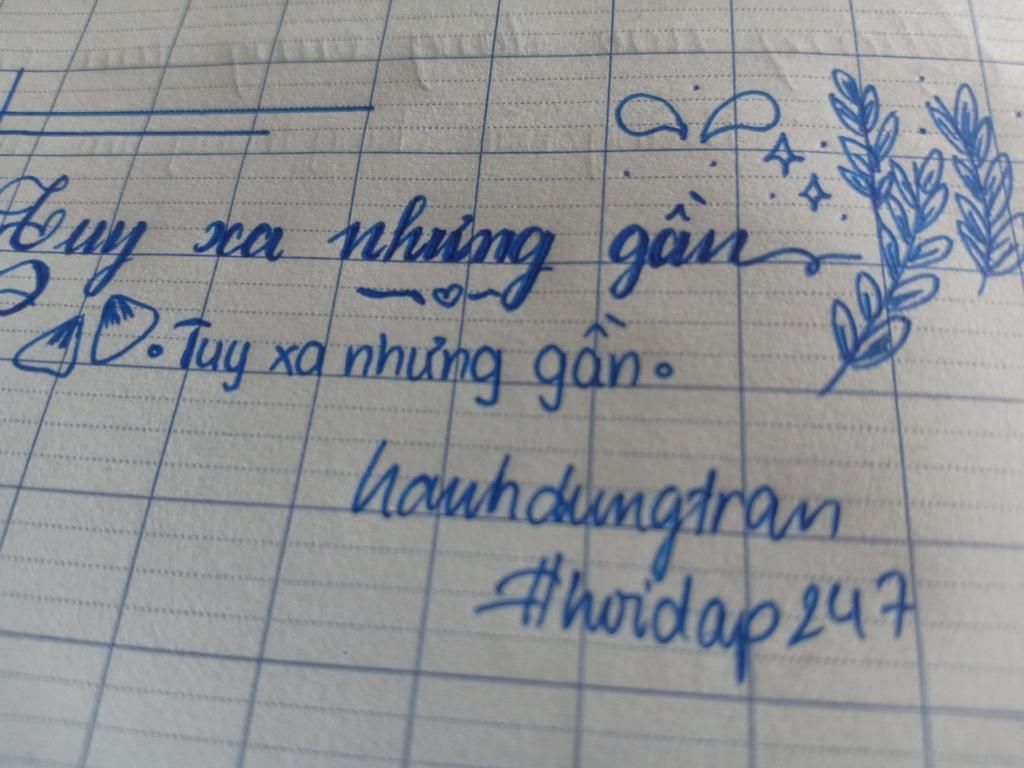 Tuy xa nhưng gần
Tuy xa nhưng gần.
hauhdungtran
#hoidap247